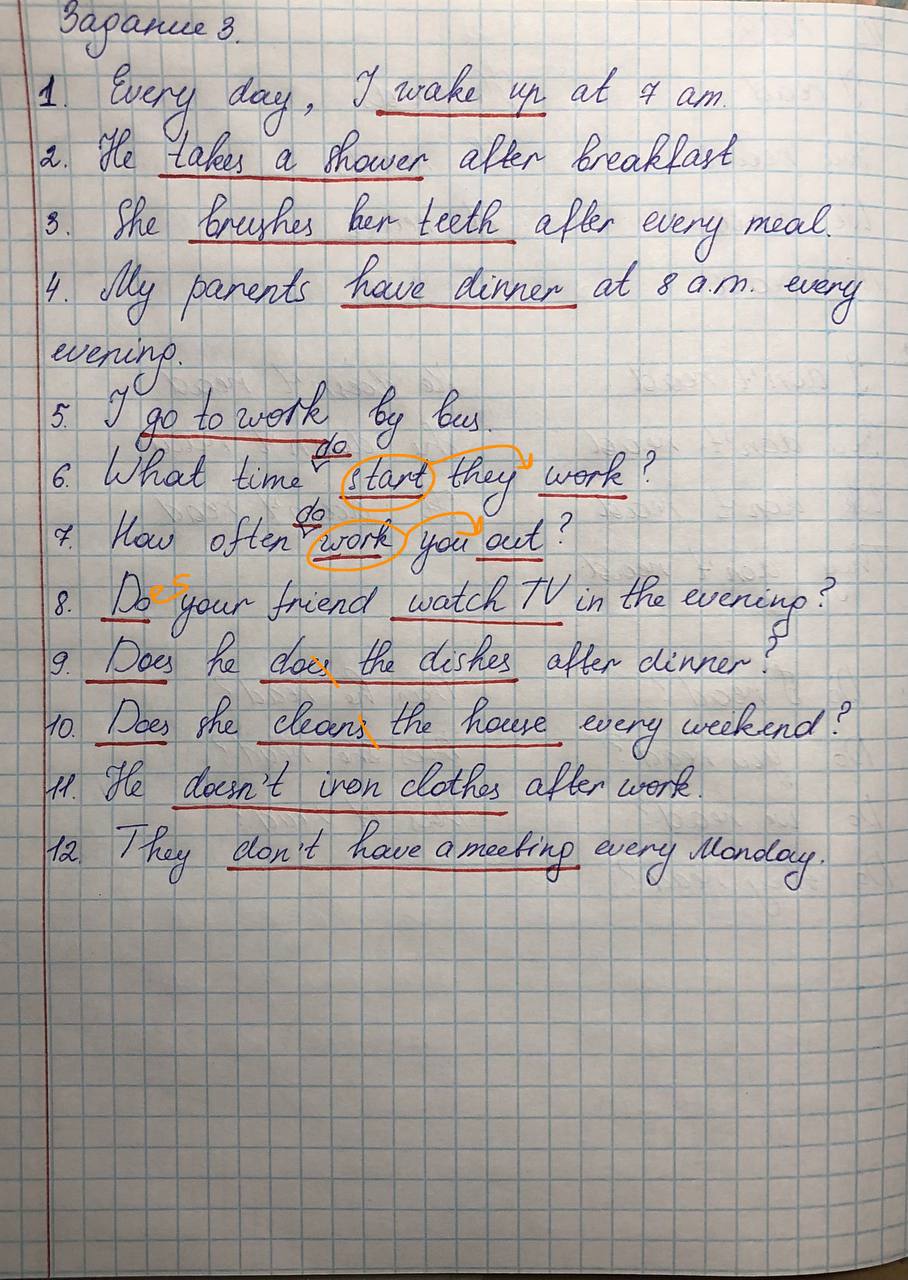 Задание 3.
1. Every day, I wake up at 7 am.
2. He takes a shower after breakfast
3. She brushes her teeth after every meal.
4. My parents have dinner at 8 a.m. every
evening.
5. I go to work by bus.
do
6. What time start they work?
do
7. How often work you out?
8. Does your friend watch TV in the evening?
9. Does he does the dishes after dinner?
10. Does she cleans the house every weekend?
11. He doesn't iron clothes after work.
12. They don't have a meeting every Monday.